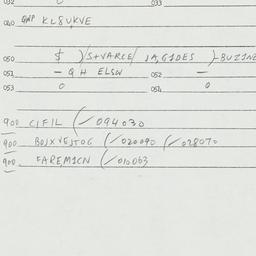 032 0 033
040 GNP KL8UKVE
050 $ )/S+VARCE/ JA,GIDES )-BUZINE
051 - Q H ELSW 052 -
053 0 054 0
900 CIFIL (/094030
900 BOJXVEJTOG (/020090 (/028070
900 FAREMICN (/010063